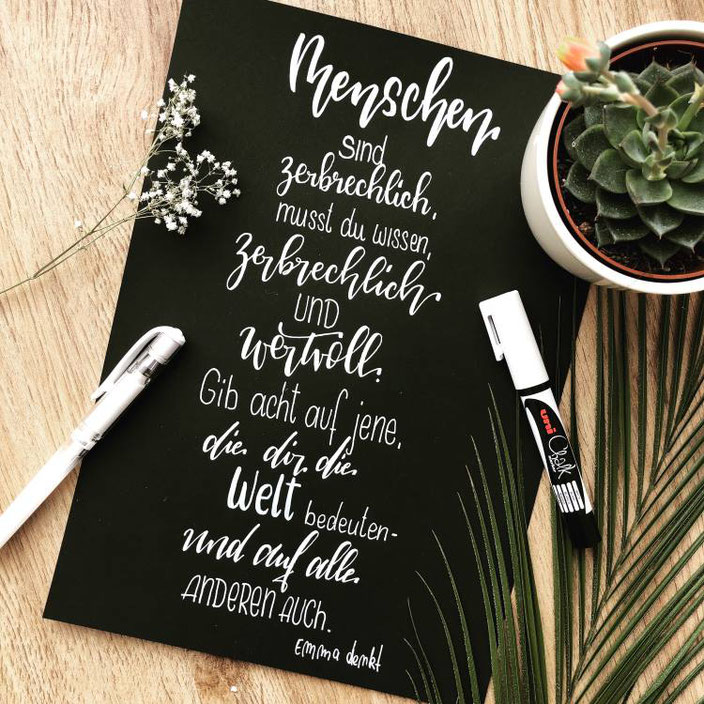 Menschen
sind
zerbrechlich,
musst du wissen,
zerbrechlich
UND
wertvoll.
Gib acht auf jene,
die dir die
Welt bedeuten-
und auf alle
ANDEREN AUCH.
Emma denkt
uni Chalk